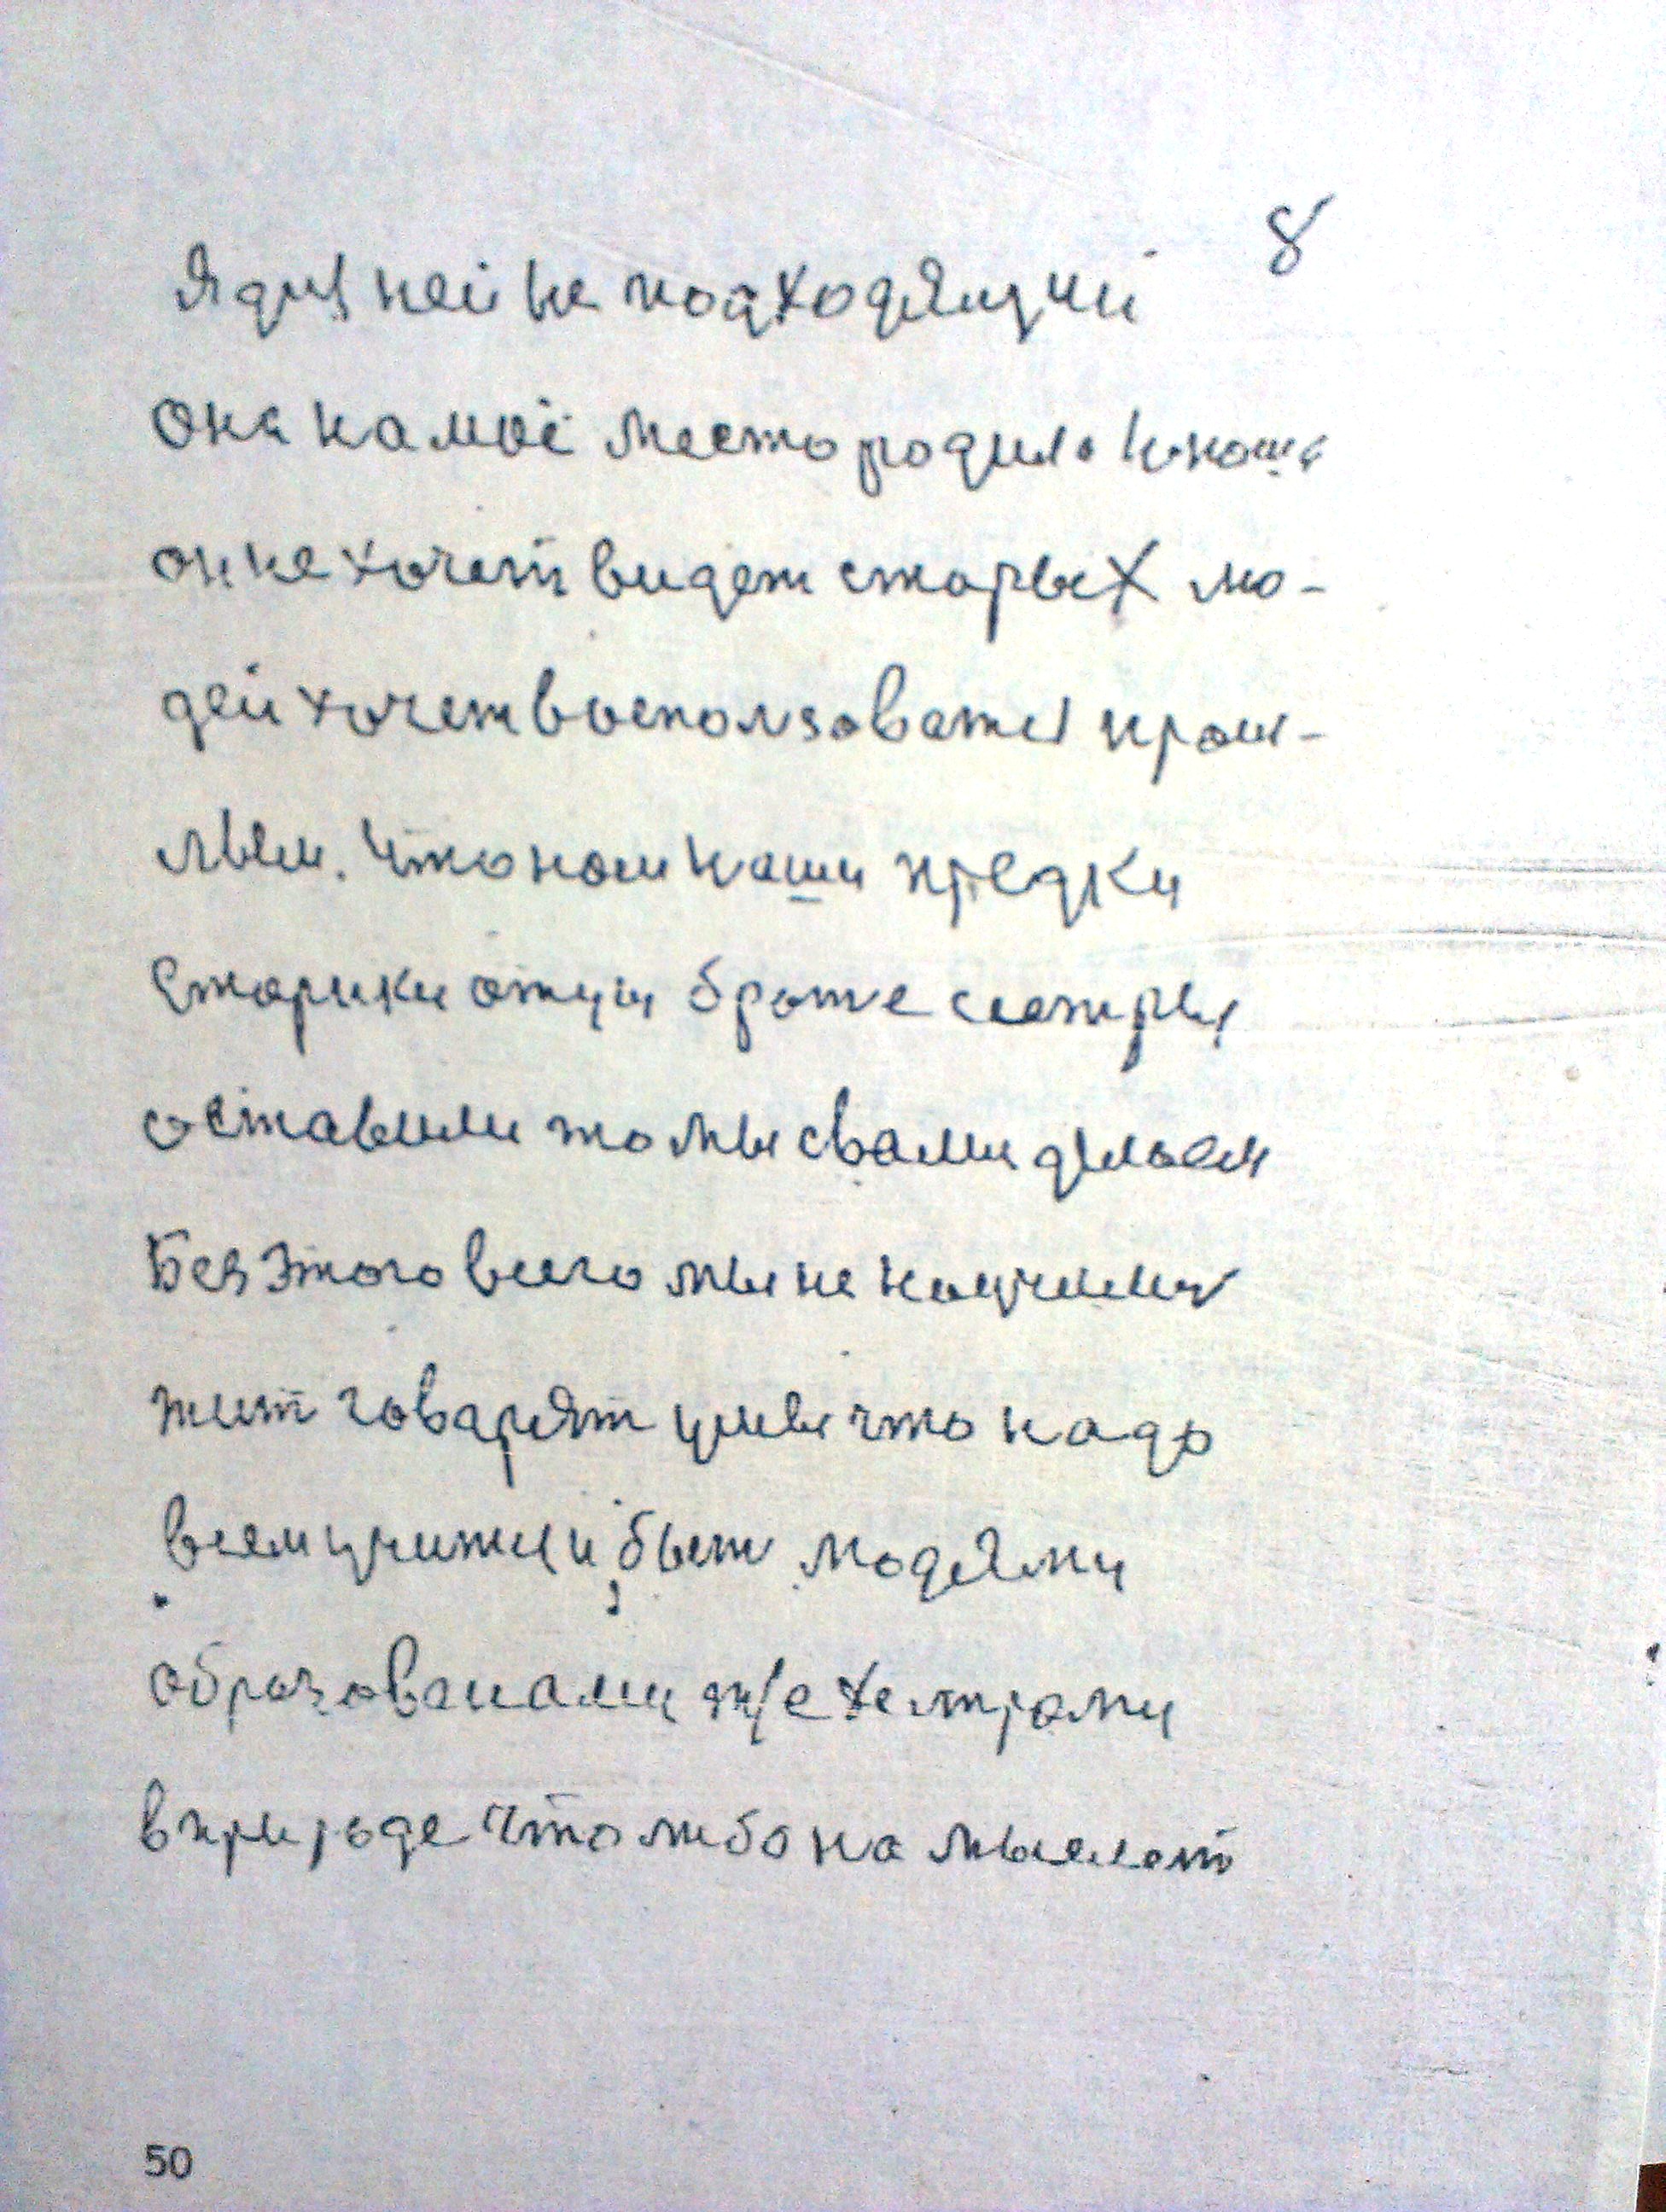 8
Я для ней не подходящий
она на моё место родила юноша
он не хочет видет старых лю-
дей хочет восползоватся прош-
лым. Что нам наши предки
старики отцы брате сестры
оставили то мы с вами делаем
Без этого всего мы не научимся
жит говарят умы что надо
всем учится и быт людями
образованами
в природе что либо на мыслет
50